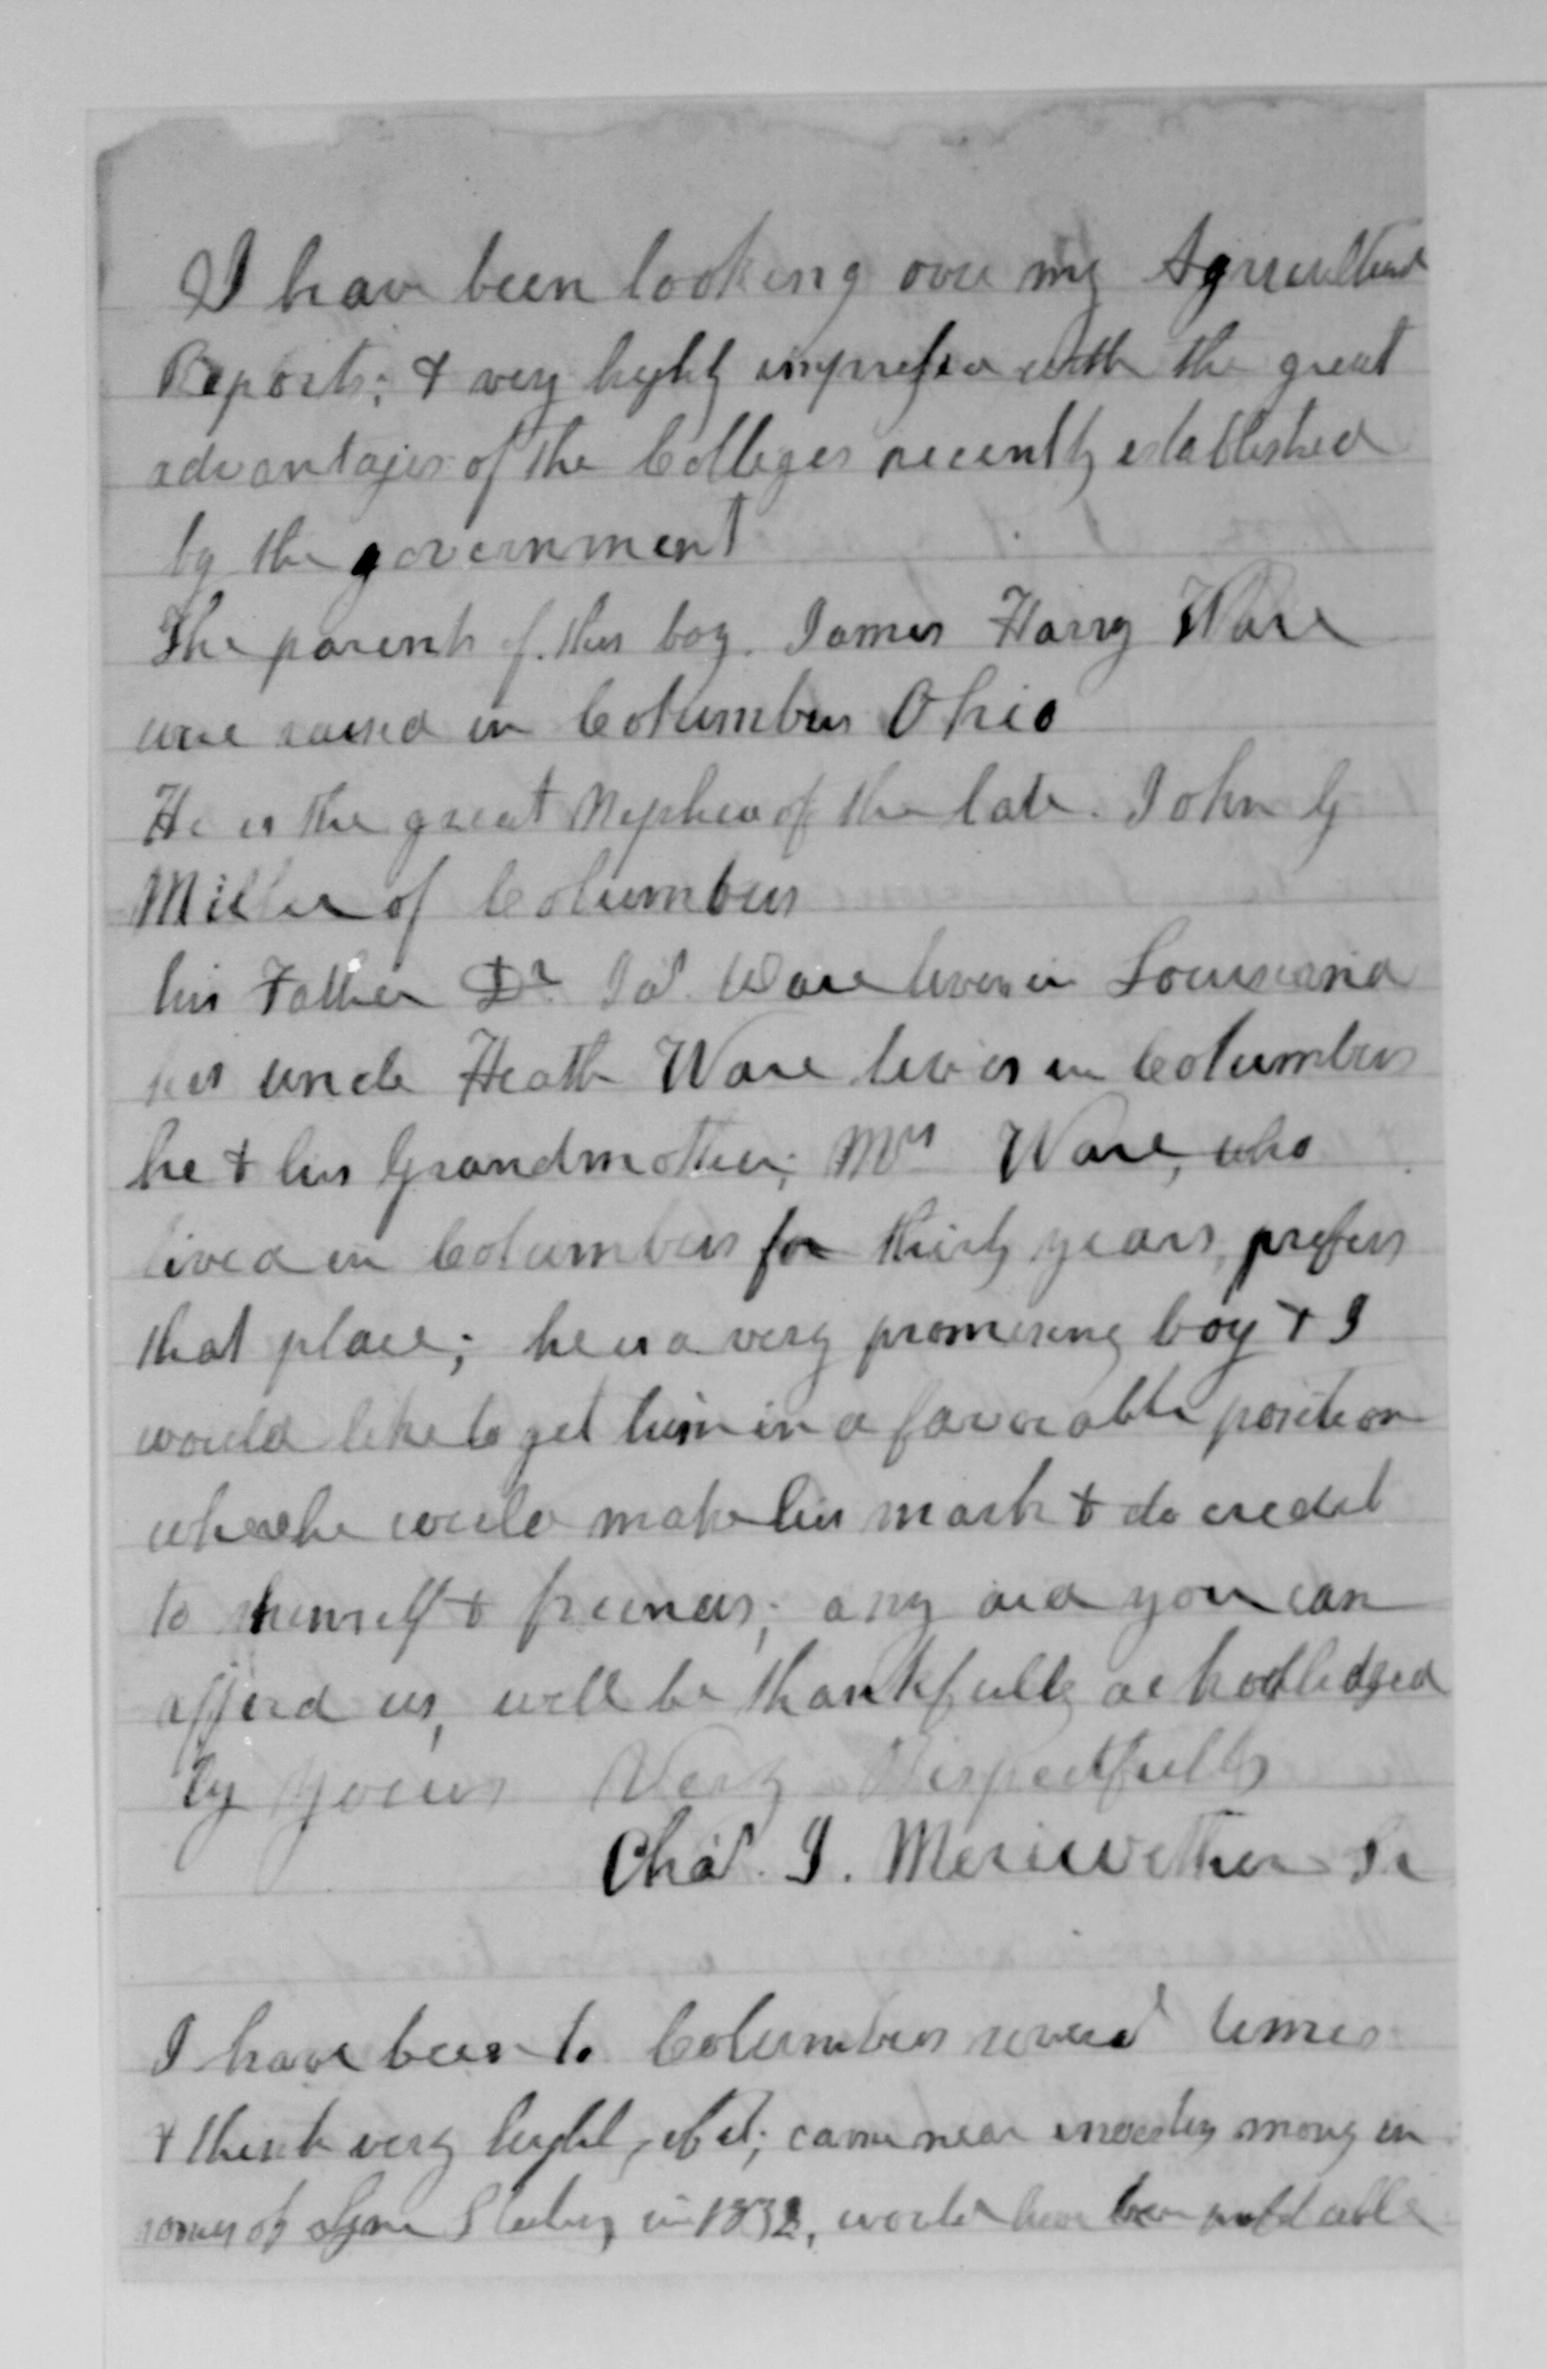 I have been looking over my Agricultural
Reports; & very highly impressed with the great
advantages of the Colleges recently established
by the government
The parents of this boy. James Harry Ware
were raised in Columbus Ohio
He is the great Nephew of the late. John G
Miller of Columbus
his Father Dr. Jas. Ware lives in Louisiana
his uncle Heath Ware lives in Columbus
he & his Grandmother; Mrs Ware, who
lived in Columbus for thirty years, prefers
that place; he is a very promising boy & I
would like to get him in a favorable position
where he could make his mark & do credit
to himself & friends; any aid you can
afford us, will be thankfully acknowledged
by yours Very Respectfully
Chas. J. Meriwether Sr
I have been to Columbus several times
& think very highly of it; came near investing money in
some of in 1832, would have been profitable